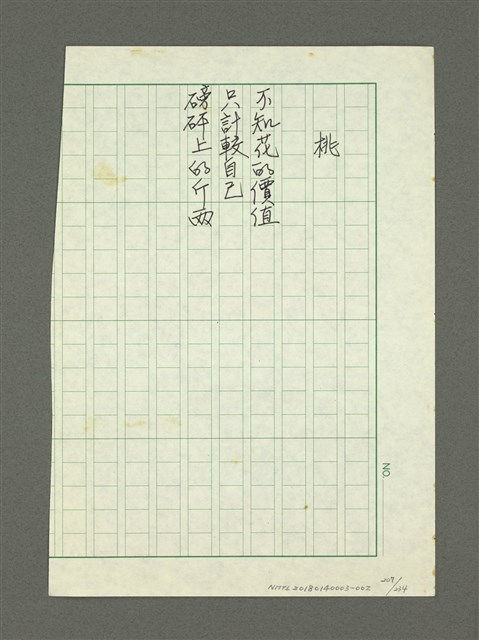 桃
不知花的價值
只計較自己
磅砰上的斤兩
NO.
NMTL20180140003-002
204/234